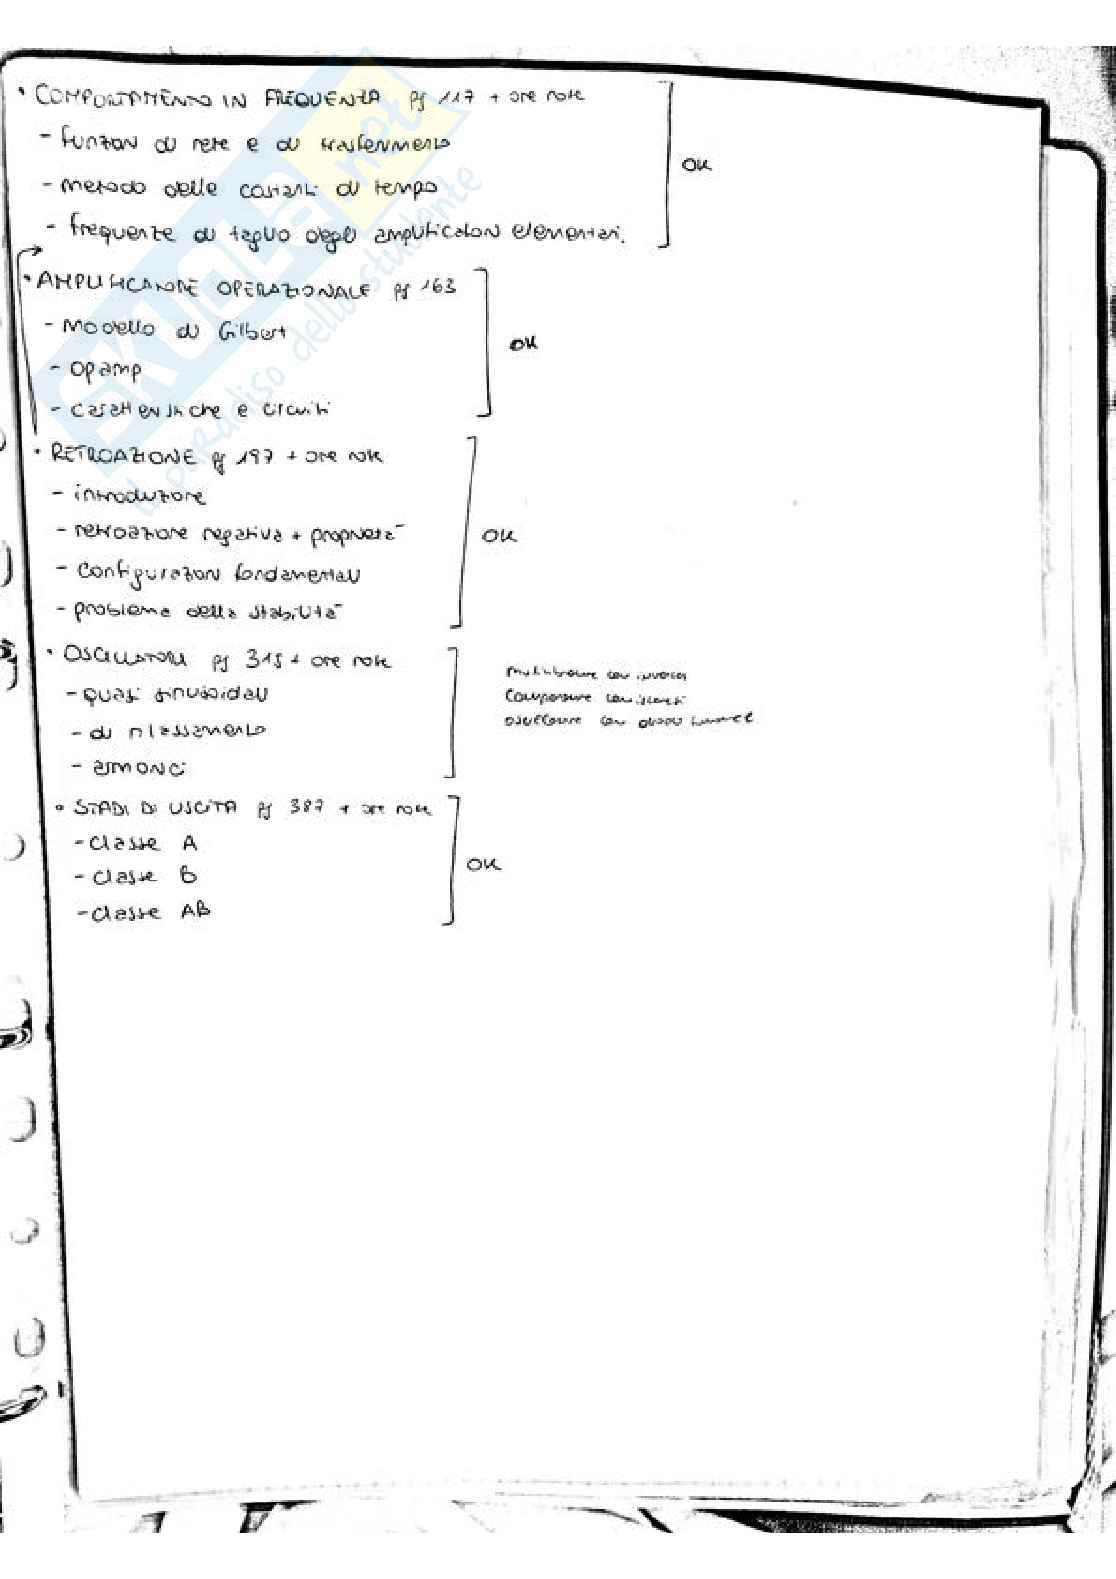 • COMPORTAMENTO IN FREQUENZA pg 117 + ore note
- funzioni di rete e di trasferimento
- metodo delle costanti di tempo
- frequenze di taglio degli amplificatori elementari.
OK
• AMPLIFICATORE OPERAZIONALE pg 163
- Modello di Gilbert
- opamp
- caratteristiche e circuiti
OK
• RETROAZIONE pg 197 + ore note
- introduzione
- retroazione negativa + proprietà
- configurazioni fondamentali
- problema della stabilità
OK
• OSCILLATORI pg 315 + ore note
- quasi sinusoidali
- di rilassamento
- armonici
multivibratore con inverter
Comparatore con isteresi
oscillatore con diodo tunnel
• STADI DI USCITA pg 387 + ore note
- classe A
- classe B
- classe AB
OK
SKUOLA.net
il paradiso dello studente